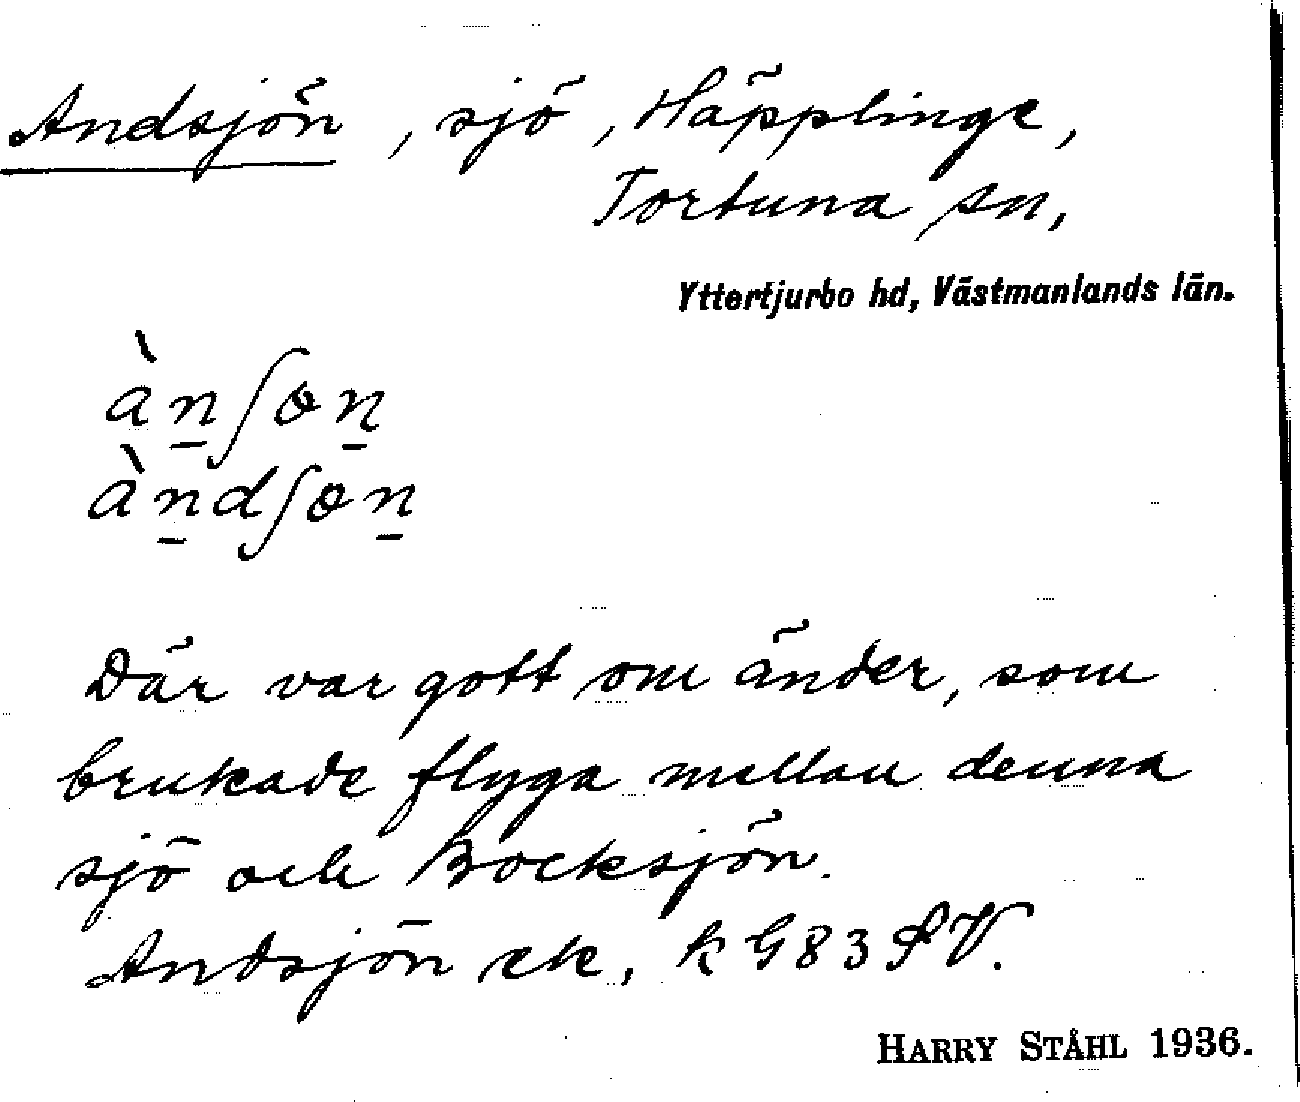 Andsjön, sjö, Häpplinge,
Tortuna sn,
Yttertjurbo hd, Västmanlands län.
àn̠ʃɵn̠
àn̠dʃɵn̠
Där var gott om änder, som
brukade flyga mellan denna
sjö och Bocksjön.
Andsjön ek, k G83 SV.
HARRY STÅHL 1936.